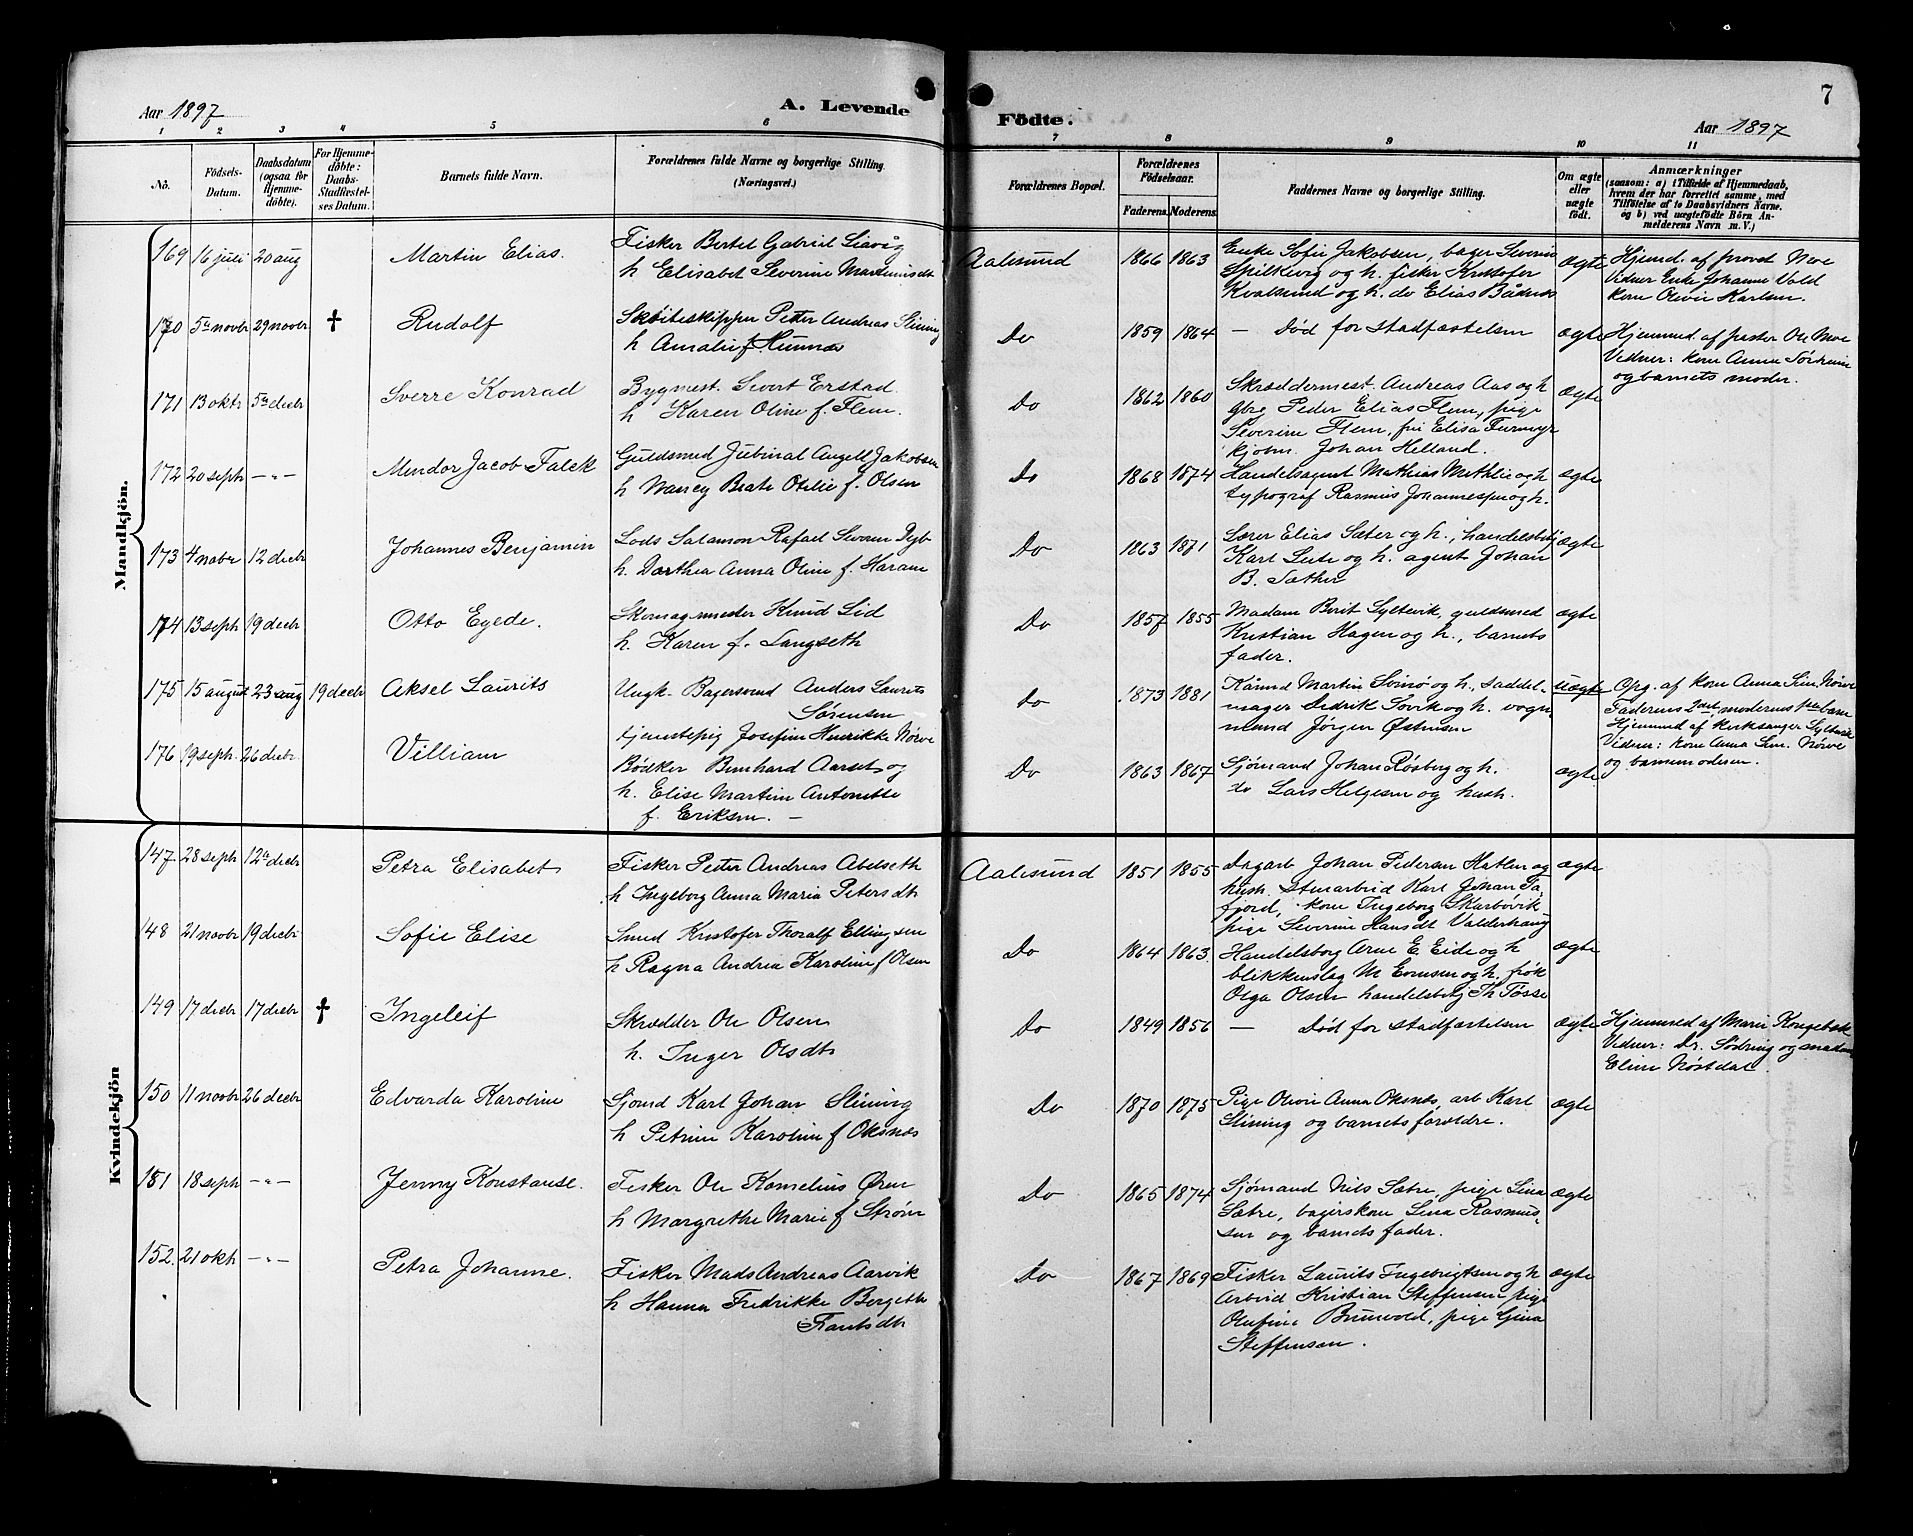 Aar 1897
A. Levende
Födte.
Aar 1897
7
1 2 3 4 5 6 7 8 9 10 11
No.
Födsels-
Datum.
Daabsdatum
(ogsaa for
Hjemme-
döbte).
For Hjemme-
döbte:
Daabs-
Stadfæstel-
ses Datum.
Barnets fulde Navn.
Forældrenes fulde Navne og borgerlige Stilling.
(Næringsvei.)
Forældrenes Bopæl.
Forældrenes
Födselsaar.
Faderens. Moderens.
Faddernes Navne og borgerlige Stilling.
Om ægte
eller
uægte
födt.
Anmærkninger
(saasom: a) i Tilfælde af Hjemmedaab,
hvem der har forrettet samme, med
Tilföielse af to Daabsvidners Navne.
og b) ved uægtefödte Börn An-
melderens Navn m. V.)
Mandkjön.
169 16 juli 20 aug
Martin Elias.
Fisker Bertel Gabriel
h Elisabet Severine
Aalesund
1866 1863
Enke Sofie Jakobsen, bager Severin
Spilkevig og h. fisker Kristofer
Kvalsund og h. do Elias
ægte
Hjemd. af provst Moe
Vidner Enke Johanne Vold
kone Olivie Karlsen.
170 5te novbr 29 novbr †
Rudolf
Skøiteskipper Petter Andreas Slining
h Amalie f.
Do
1859 1864
— Død for stadfæstelsen
ægte
Hjemmed. af pastor Ole Moe
Vidner: kone Anna
og barnets moder.
171 13 oktr 5te decbr
Sverre Konrad
Bygmest. Sivert Erstad
h Karen Oline f. Flem.
Do
1862 1860
Skræddermest. Andreas Aas og h
gbr Peder Elias Flem, pige
Severine Flem, frk Elisa Furmyr
kjøbm. Johan Helland.
ægte
172 20 septr —"—
Mindor Jacob Falck
Guldsmed Jubinal Angell Jakobsen
h Nancy Beate Otilie f. Olsen
Do
1868 1874
Handelsagent Mathias og h
typograf Rasmus Johannessen og h.
ægte
173 4 novbr 12 decbr
Johannes Benjamin
Lods Salamon Rafael Severin Dyb
h. Dorthea Anna Oline f. Haram
Do
1863 1871
Lærer Elias Sæter og h., handelsbetj
Karl Leite og h. agent Johan
B. Sæther
ægte
174 13 septr 19 decbr
Otto Egede.
Skomagermester Knud Lid
h. Karen f. Langseth
Do
1857 1855
Madam Berit Syltevik, guldsmed
Kristian Hagen og h., barnets
fader.
ægte
175 15 august 23 aug 19 decbr
Aksel Laurits
Ungk. Bagersvend Anders Laurits
Sørensen
tjenestepig Josefine Henrikke Nørve
Do
1873 1881
Martin Svinø og h, saddel-
mager Didrik Sovik og h. vogn-
mand Jørgen Østensen
uægte
Opg. af kone Anna Sim. Nørve
Faderens 2det, moderens 1ste barn
Hjemmed af kirksanger Syltevik
Vidner: kone Anna Sim. Nørve
og barnemoderen.
176 19 septr. 26 decbr.
Villiam
Bødker Bernhard Aarset og
h. Elise Martine Antonette
f. Eriksen. —
Do
1863 1867
Sjømand Johan Røsberg og h.
do Lars Helgesen og hush.
ægte
Kvindekjön
147 28 septr 12te decbr
Petra Elisabet
Fisker Peter Andreas Abelseth
h Ingeborg Anna Maria Petersdtr
Aalesund
1851 1855
Dagarb Johan Pedersen Hatlen og
hush. Stenarbeid Karl Johan Ta-
fjord, kone Ingeborg Skarbøvik
pige Severine Hansdt Valderhaug
ægte
148 21 novbr 19 decbr
Sofie Elise
Smed Kristofer Thoralf Ellingsen
h Ragna Andrea Karoline f Olsen
Do
1864 1863
Handelsborg Arne E. Eide og h
blikkenslag M Evensen og h. frøk
Olga Olsen handelsbetj Th Tøsse
ægte
149 17 decbr 17 decbr †
Ingeleif
Skrædder Ole Olsen
h. Inger Olsdtr
Do
1849 1856
— Død for stadfæstelsen
ægte
Hjemmed af Marie
Vidner: Dr. Sødring og madam
Eline Nøstdal.
150 11 novbr 26 decbr
Edvarda Karoline
Sjømd Karl Johan Slining
h Petrine Karoline f Oksnæs
Do
1870 1875
Pige Olivie Anna Oksnes, arb Karl
Slining og barnets forældre.
ægte
151 18 septr —"—
Jenny Konstanse.
Fisker Ole Kornelius Øren
h Margrethe Marie f Strøm
Do
1865 1874
Sjømand Nils Sætre, pige Lina
Sætre, bagerskone Lina Rasmus-
sen og barnets fader.
ægte
152. 21 oktr —"—
Petra Johanne.
Fisker Mads Andreas Aarvik
h Hanna Fredrikke Bergette
Frantsdtr
Do
1867 1869
Fisker Laurits Ingebrigtsen og h
Arbeid Kristian Steffensen pige
Olufine Brunvold, pige Gina
Steffensen.
ægte